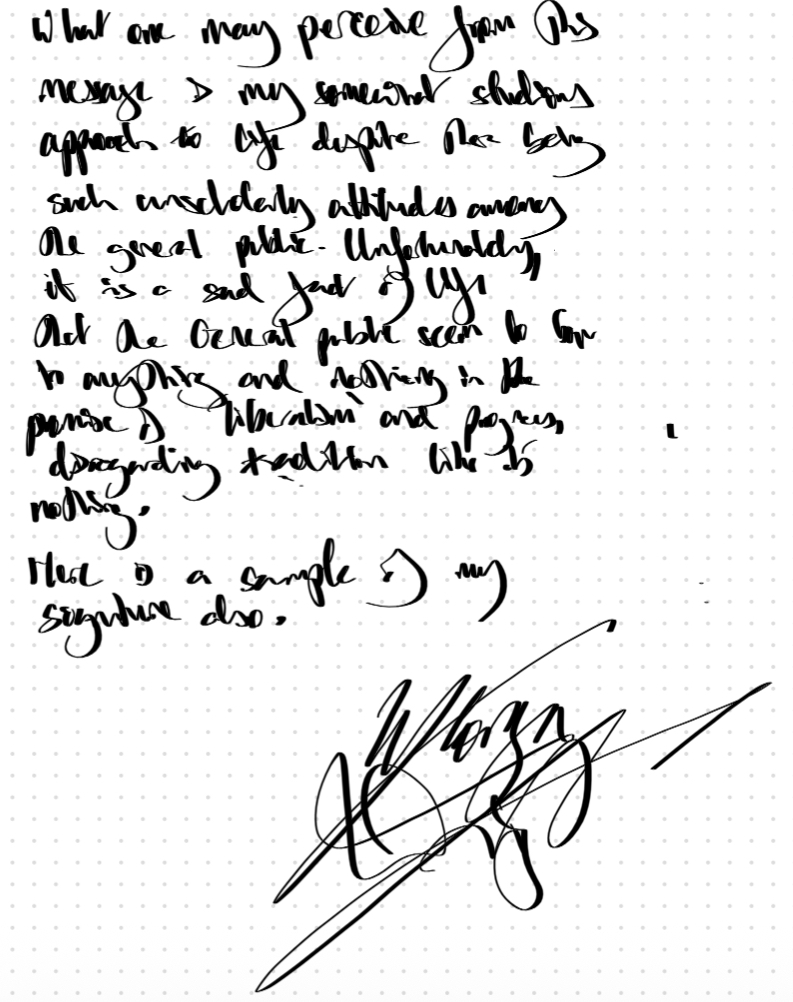 What one may perceive from this
message is my somewhat studious
approach to life despite there being
such unscholarly attitudes among
the general public. Unfortunately,
it is a sad fact of life
that the General public seem to
to anything and nothing in the
of liberalism and progress,
disregarding tradition like it's
nothing.
Here is a sample of my
signature also.